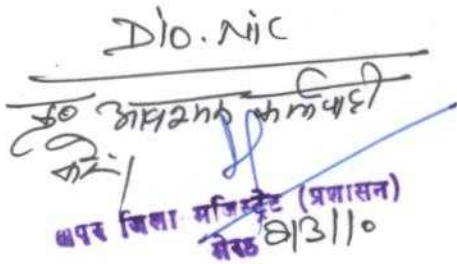 DIO. NIC
कृ० आवश्यक कार्यवाही
करें।
अपर जिला मजिस्ट्रेट (प्रशासन)
मेरठ 8/3/10